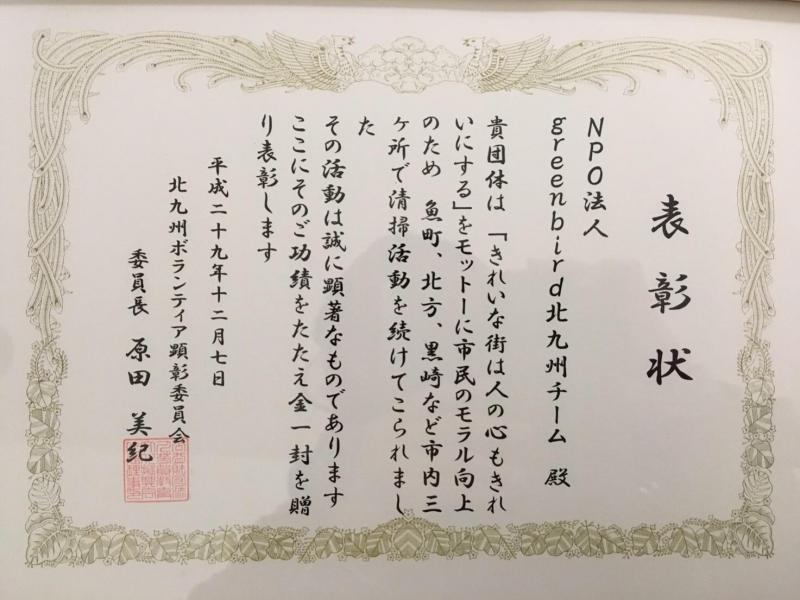 表彰状
NPO法人
greenbird北九州チーム 殿
貴団体は「きれいな街は人の心もきれ
いにする」をモットーに市民のモラル向上
のため 魚町、北方、黒崎など市内三
ヶ所で清掃活動を続けてこられまし
た
その活動は誠に顕著なものであります
ここにそのご功績をたたえ金一封を贈
り表彰します
平成二十九年十二月七日
北九州ボランティア顕彰委員会
委員長 原田 美紀